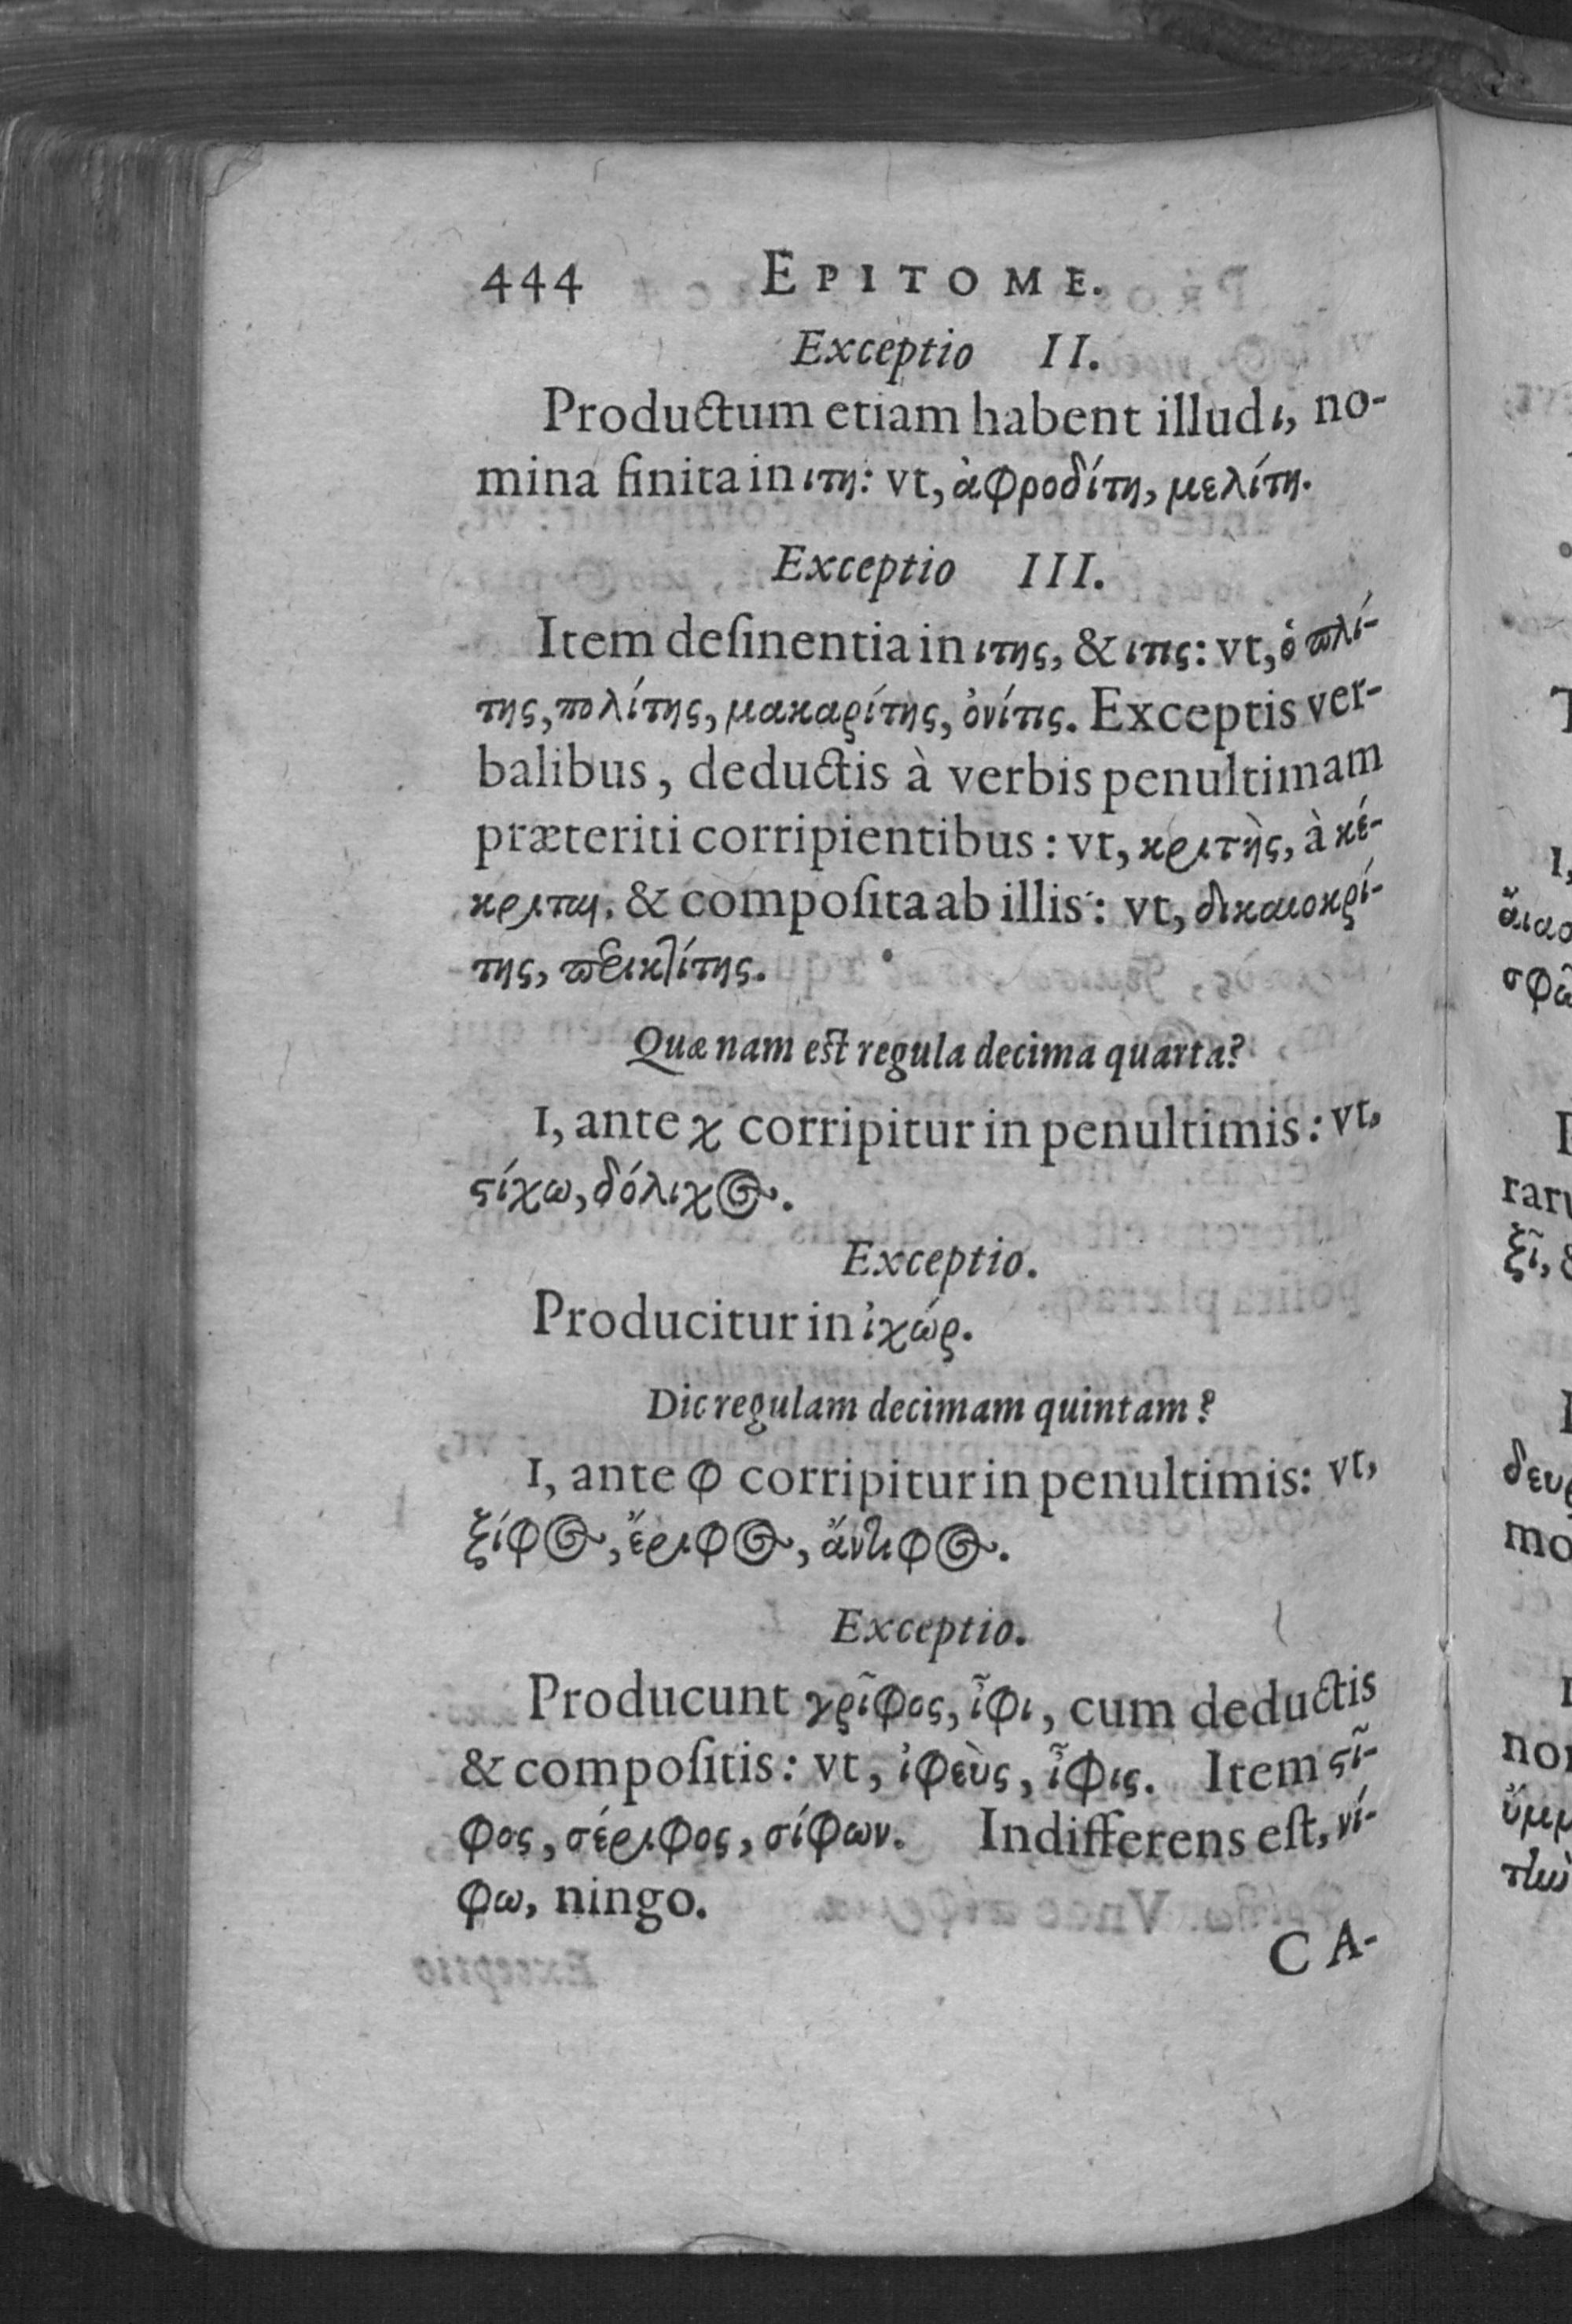 444 EPITOME.
Exceptio II.
Productum etiam habent illud ι, no-
mina finita in ιτη: vt, ἀφροδίτη, μελίτη.
Exceptio III.
Item deſinentia in ιτης, & ιτις: vt, ὁπλί-
της, πολίτης, μακαρίτης, ὀνίτις. Exceptis ver-
balibus, deductis à verbis penultimam
præteriti corripientibus: vt, κριτὴς, à κέ-
κριται. & compoſita ab illis: vt, δικαιοκρί-
της, περικλίτης.
Quæ nam est regula decima quarta?
I, ante χ corripitur in penultimis: vt,
ςίχω, δόλιχος.
Exceptio.
Producitur in ἰχώρ.
Dic regulam decimam quintam?
I, ante φ corripitur in penultimis: vt,
ξίφος, ἔριφος, ἄντιφος.
Exceptio.
Producunt γρῖφος, ἶφι, cum deductis
& compoſitis: vt, ἰφεὺς, ἶφις. Item ςῖ-
φος, σέριφος, σίφων. Indifferens eſt, νί-
φω, ningo.
CA-